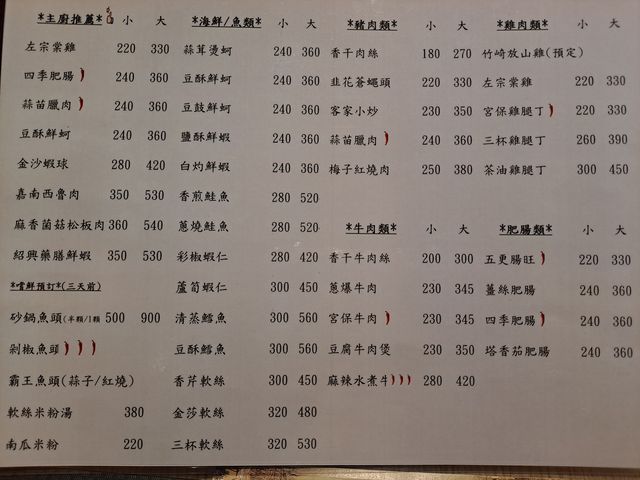 *主廚推薦* 小 大
左宗棠雞 220 330
四季肥腸 240 360
蒜苗臘肉 240 360
豆酥鮮蚵 240 360
金沙蝦球 280 420
嘉南西魯肉 350 530
麻香菌菇松板肉 360 540
紹興藥膳鮮蝦 350 530
*嚐鮮預訂*(三天前)
砂鍋魚頭(半顆/1顆 500 900
剁椒魚頭
霸王魚頭(蒜子/紅燒)
軟絲米粉湯 380
南瓜米粉 220
*海鮮/魚類* 小 大
蒜茸燙蚵 240 360
豆酥鮮蚵 240 360
豆鼓鮮蚵 240 360
鹽酥鮮蝦 240 360
白灼鮮蝦 240 360
香煎鮭魚 280 520
蔥燒鮭魚 280 520
彩椒蝦仁 280 420
蘆筍蝦仁 300 450
清蒸鱈魚 300 560
豆酥鱈魚 300 560
香芹軟絲 300 450
金莎軟絲 320 480
三杯軟絲 320 530
*豬肉類* 小 大
香干肉絲 180 270
韭花蒼蠅頭 220 330
客家小炒 230 350
蒜苗臘肉 240 360
梅子紅燒肉 250 380
*牛肉類* 小 大
香干牛肉絲 200 300
蔥爆牛肉 230 345
宮保牛肉 230 345
豆腐牛肉煲 230 350
麻辣水煮牛 280 420
*雞肉類* 小 大
竹崎放山雞(預定)
左宗棠雞 220 330
宮保雞腿丁 220 330
三杯雞腿丁 260 390
茶油雞腿丁 300 450
*肥腸類* 小 大
五更腸旺 220 330
薑絲肥腸 240 360
四季肥腸 240 360
塔香茄肥腸 240 360